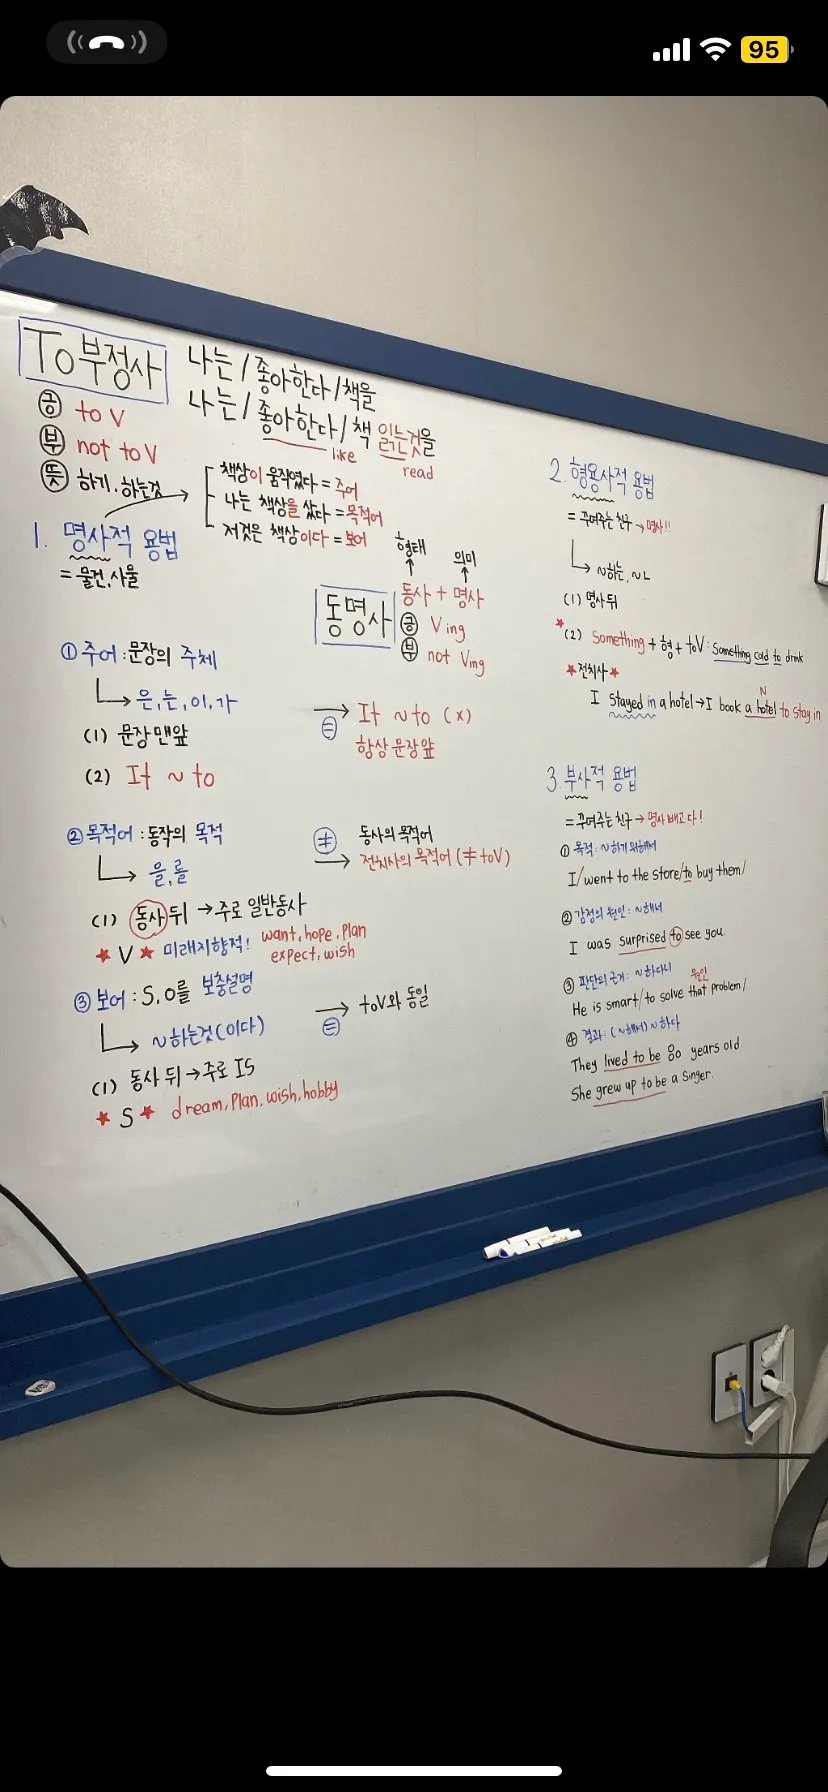 95
To부정사
나는 / 좋아한다 / 책을
나는 / 좋아한다 / 책 읽는것을
like
read
긍 to V
부 not to V
뜻 하기, 하는것
책상이 움직였다 = 주어
나는 책상을 샀다 = 목적어
저것은 책상이다 = 보어
1. 명사적 용법
= 물건, 사물
① 주어 : 문장의 주체
은, 는, 이, 가
(1) 문장맨앞
(2) It ~ to
② 목적어 : 동작의 목적
을, 를
(1) 동사 뒤 → 주로 일반동사
★ V ★ 미래지향적! want, hope, plan
expect, wish
③ 보어 : S, O를 보충설명
~하는것(이다)
(1) 동사 뒤 → 주로 IS
★ S ★ dream, plan, wish, hobby
형태
의미
동명사
동사 + 명사
긍 Ving
부 not Ving
= It ~ to (x)
항상 문장앞
≠ 동사의 목적어
전치사의 목적어 (≠ toV)
= toV와 동일
2. 형용사적 용법
= 꾸며주는 친구 → 명사!!
~하는, ~ㄴ
(1) 명사 뒤
★(2) Something + 형 + toV : Something cold to drink
★전치사★
N
I stayed in a hotel → I book a hotel to stay in
3. 부사적 용법
= 꾸며주는 친구 → 명사 빼고 다!
① 목적 : ~하기 위해서
I / went to the store / to buy them /
② 감정의 원인 : ~해서
I was surprised to see you.
③ 판단의 근거 : ~하다니
원인
He is smart / to solve that problem /
④ 결과 : (~해서) ~하다
They lived to be 80 years old.
She grew up to be a singer.